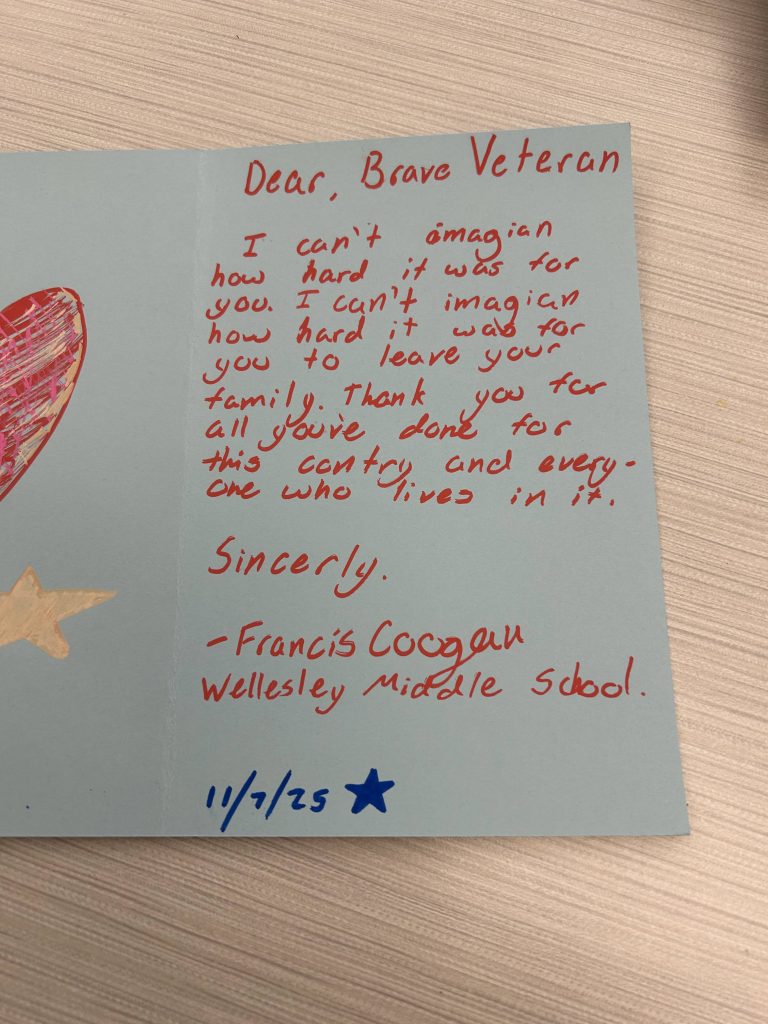 Dear, Brave Veteran
I can't imagian
how hard it was for
you. I can't imagian
how hard it was for
you to leave your
family. Thank you for
all you've done for
this contry and every-
one who lives in it.
Sincerly.
- Francis Coogan
Wellesley Middle School.
11/7/25